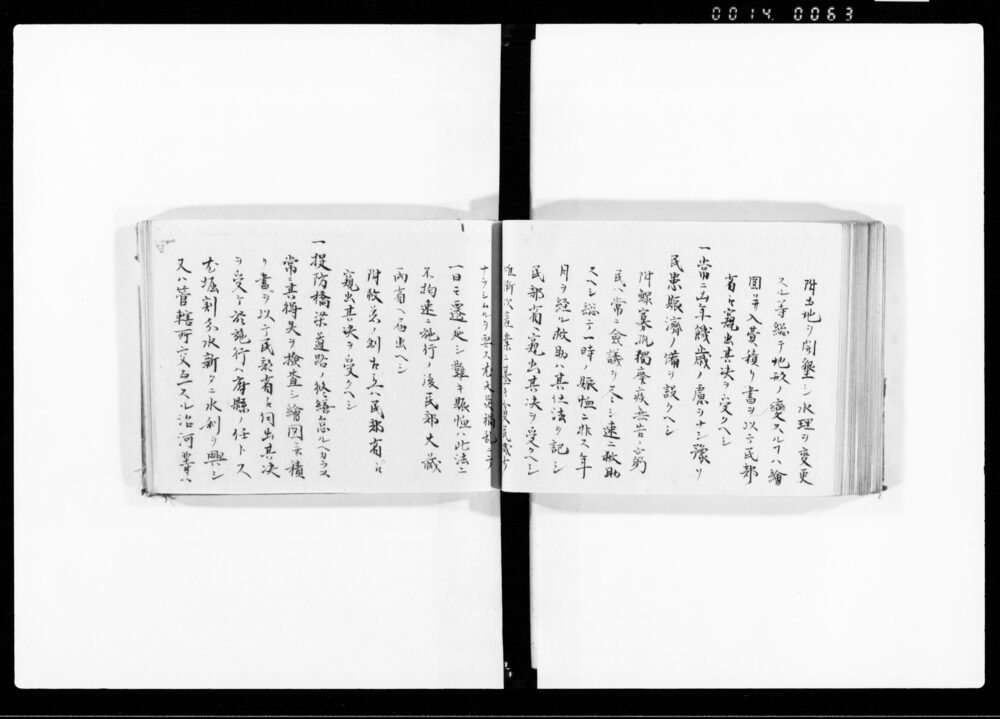 0014 0063
附土地ヲ開墾シ水理ヲ変更
スル等総テ地形ノ変スルヿハ繪
圖并入費積リ書ヲ以テ民部
省ヘ窺出其决ヲ受クヘシ
一常ニ凶年饑歳ノ慮ヲナシ豫メ
民患賑濟ノ備ヲ設クヘシ
附鰥寡孤獨癈疾無告ノ窮
民ヘ常ニ會議ヲ尽シ速ニ救助
スヘシ総テ一時ノ賑恤ニ非ス年
月ヲ経ル救助ハ其仕法ヲ記シ
民部省ヘ窺出其决ヲ受クヘシ
ナラシムルヲ要ス
一日モ遷延シ難キ賑恤ハ此法ニ
不拘速ニ施行ノ後民部大蔵
両省ヘ届出ヘシ
附救荒ノ
窺出其决ヲ受クヘシ
一提防橋梁道路ノ修繕怠ルヘカラス
常ニ其得失ヲ検査シ繪図并積
リ書ヲ以テ民部省ヘ伺出其决
ヲ受ケ於施行ハ府縣ノ任トス
尤堀割分水新タニ水利ヲ興シ
又ハ管轄所交互スル治河等ハ